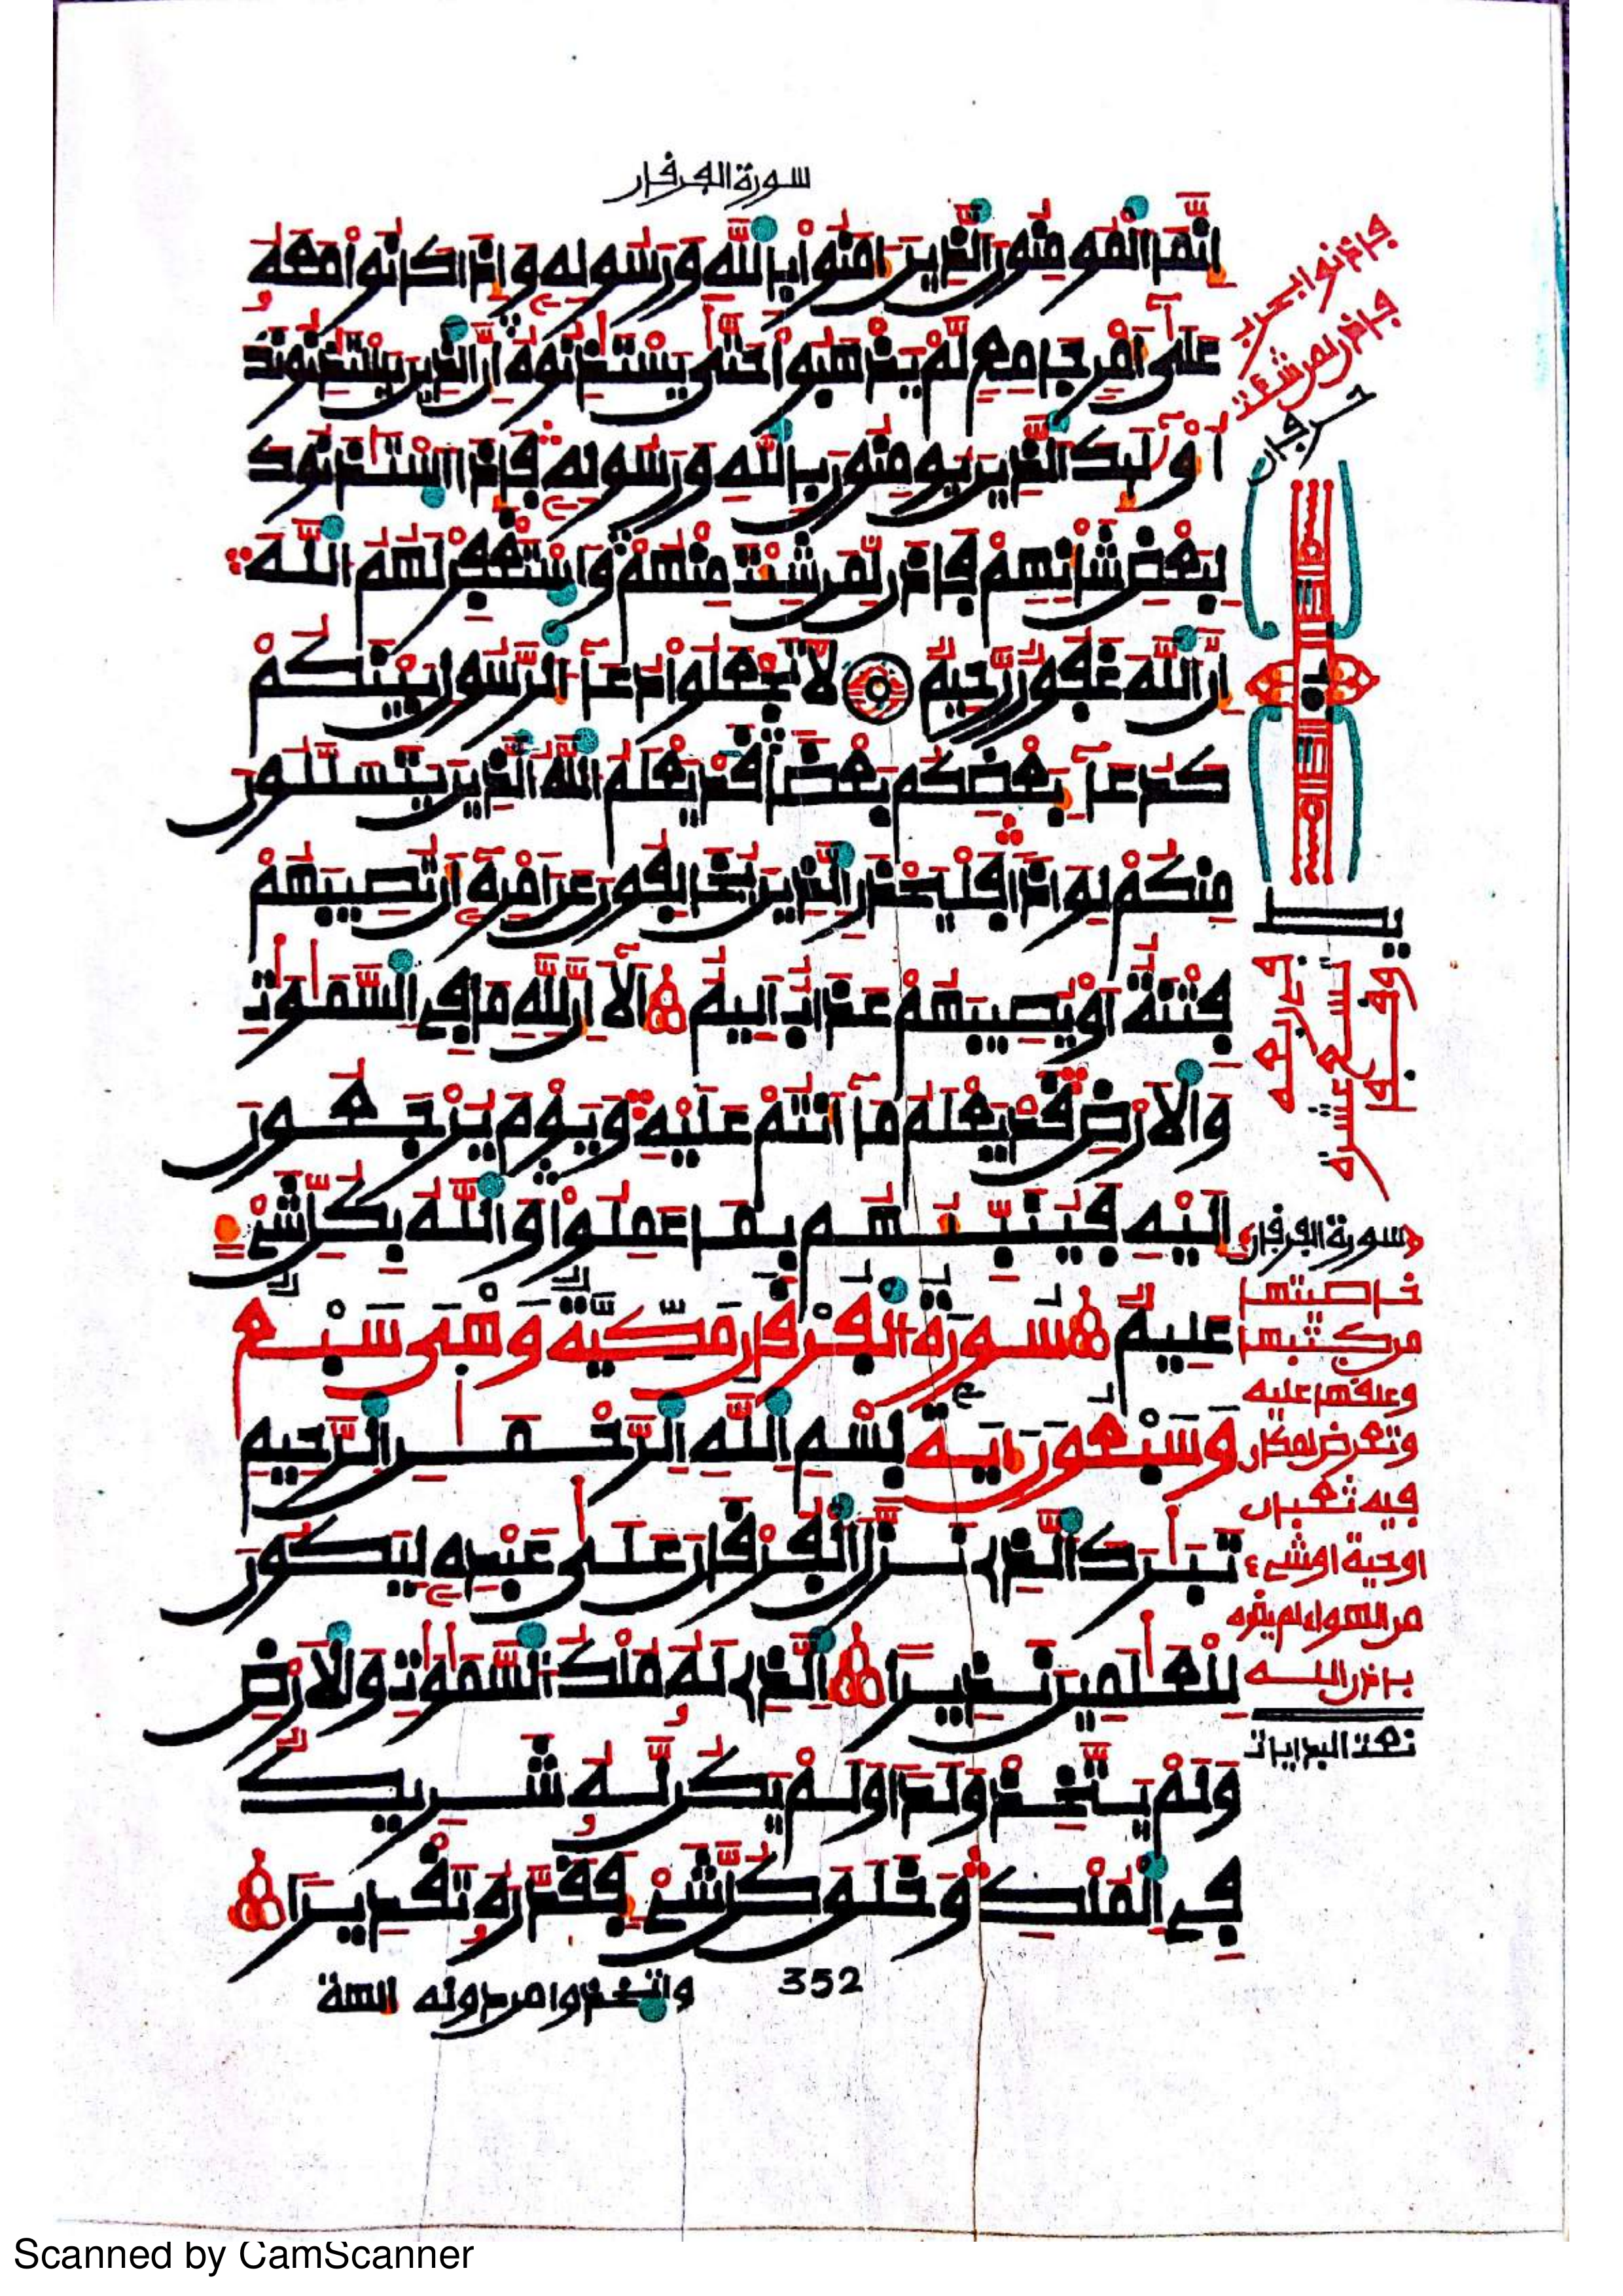 سورة الفرقان
إِنَّمَا الْمُومِنُونَ الَّذِينَ ءَامَنُوا بِاللَّهِ وَرَسُولِهِ وَإِذَا كَانُوا مَعَهُ
عَلَىٰ أَمْرٍ جَامِعٍ لَّمْ يَذْهَبُوا حَتَّىٰ يَسْتَٰذِنُوهُ إِنَّ الَّذِينَ يَسْتَٰذِنُونَكَ
أُوْلَٰئِكَ الَّذِينَ يُومِنُونَ بِاللَّهِ وَرَسُولِهِ فَإِذَا اسْتَٰذَنُوكَ
لِبَعْضِ شَأْنِهِمْ فَاذَن لِّمَن شِئْتَ مِنْهُمْ وَاسْتَغْفِرْ لَهُمُ اللَّهَ
إِنَّ اللَّهَ غَفُورٌ رَّحِيمٌ لَا تَجْعَلُوا دُعَآءَ الرَّسُولِ بَيْنَكُمْ
كَدُعَآءِ بَعْضِكُم بَعْضًا قَدْ يَعْلَمُ اللَّهُ الَّذِينَ يَتَسَلَّلُونَ
مِنكُمْ لِوَاذًا فَلْيَحْذَرِ الَّذِينَ يُخَالِفُونَ عَنْ أَمْرِهِ أَن تُصِيبَهُمْ
فِتْنَةٌ أَوْ يُصِيبَهُمْ عَذَابٌ أَلِيمٌ أَلَا إِنَّ لِلَّهِ مَا فِي السَّمَٰوَٰتِ
وَالْأَرْضِ قَدْ يَعْلَمُ مَا أَنتُمْ عَلَيْهِ وَيَوْمَ يُرْجَعُونَ
إِلَيْهِ فَيُنَبِّئُهُم بِمَا عَمِلُوا وَاللَّهُ بِكُلِّ شَيْءٍ
عَلِيمٌ سُورَةُ الْفُرْقَانِ مَكِّيَّةٌ وَهْىَ سَبْعٌ
وَسَبْعُونَ ءَايَةً بِسْمِ اللَّهِ الرَّحْمَٰنِ الرَّحِيمِ
تَبَٰرَكَ الَّذِي نَزَّلَ الْفُرْقَانَ عَلَىٰ عَبْدِهِ لِيَكُونَ
لِلْعَٰلَمِينَ نَذِيرًا الَّذِي لَهُ مُلْكُ السَّمَٰوَٰتِ وَالْأَرْضِ
وَلَمْ يَتَّخِذْ وَلَدًا وَلَمْ يَكُن لَّهُ شَرِيكٌ
فِي الْمُلْكِ وَخَلَقَ كُلَّ شَيْءٍ فَقَدَّرَهُ تَقْدِيرًا
352
واتخذوا من دونه ءالهة
فاذنوا بحرب
فاذن لمن شئت
حرفان
سورة الفرقان
خاصيتها
من كتبها
وعلقها عليه
وتعرض لمكان
فيه ثعبان
او حية او شيء
من الهوام لم يضره
باذن الله
تمت البدايات
Scanned by CamScanner